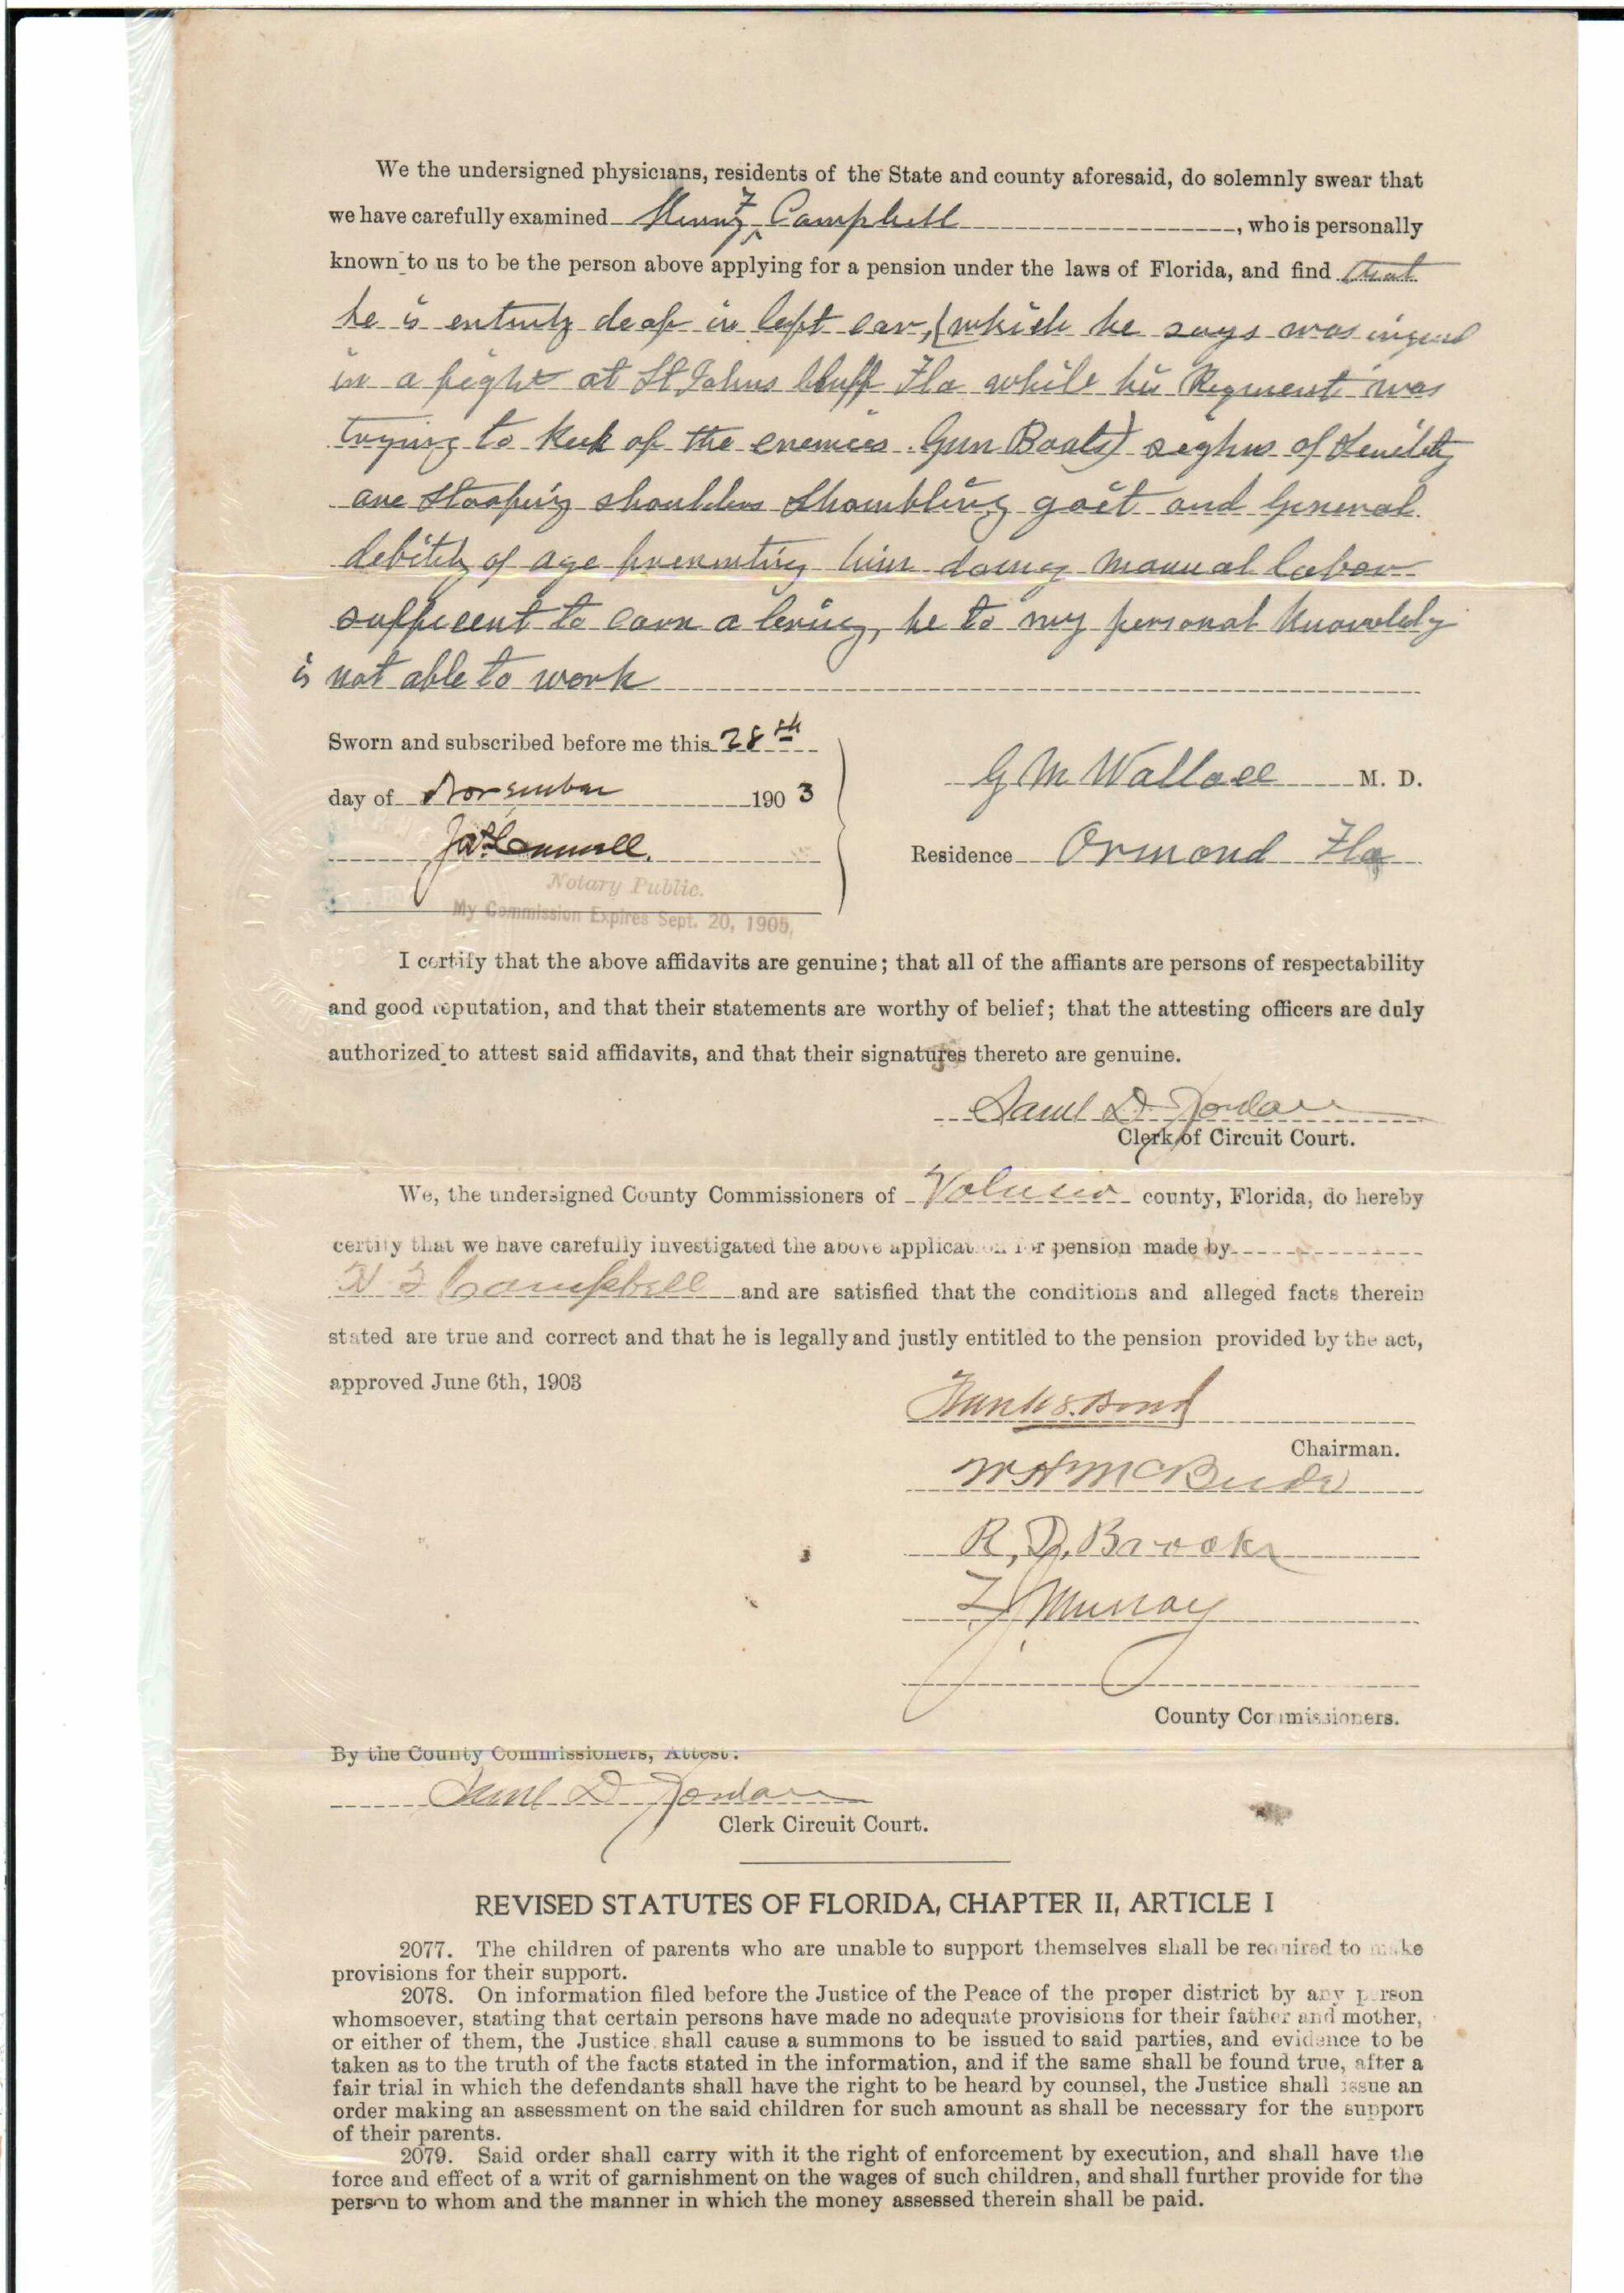 We the undersigned physicians, residents of the State and county aforesaid, do solemnly swear that
we have carefully examined Henry F Campbell, who is personally
known to us to be the person above applying for a pension under the laws of Florida, and find that
he is entirely deaf in left ear, (which he says was injured
in a fight at St Johns bluff Fla while his Regment was
trying to keek of the enemies Gun Boats) sighns of Senility
are Stooping shoulders Shambling gait and General
debility of age preventing him doing manual labor
sufficent to earn a living, he to my personal knowledg
is not able to work
Sworn and subscribed before me this 28th
day of November 1903
G M Wallace M. D.
Residence Ormond Fla
Notary Public.
My Commission Expires Sept. 20, 1905,
I certify that the above affidavits are genuine; that all of the affiants are persons of respectability
and good reputation, and that their statements are worthy of belief; that the attesting officers are duly
authorized to attest said affidavits, and that their signatures thereto are genuine.
Saml D. Jordan
Clerk of Circuit Court.
We, the undersigned County Commissioners of Volusia county, Florida, do hereby
certify that we have carefully investigated the above application for pension made by
H F Campbell and are satisfied that the conditions and alleged facts therein
stated are true and correct and that he is legally and justly entitled to the pension provided by the act,
approved June 6th, 1903
Frank S. Bond
Chairman.
W H McBride
R. D. Brooke
Murray
County Commissioners.
By the County Commissioners, Attest:
Saml D Jordan
Clerk Circuit Court.
REVISED STATUTES OF FLORIDA, CHAPTER II, ARTICLE I
2077. The children of parents who are unable to support themselves shall be required to make
provisions for their support.
2078. On information filed before the Justice of the Peace of the proper district by any person
whomsoever, stating that certain persons have made no adequate provisions for their father and mother,
or either of them, the Justice shall cause a summons to be issued to said parties, and evidence to be
taken as to the truth of the facts stated in the information, and if the same shall be found true, after a
fair trial in which the defendants shall have the right to be heard by counsel, the Justice shall issue an
order making an assessment on the said children for such amount as shall be necessary for the support
of their parents.
2079. Said order shall carry with it the right of enforcement by execution, and shall have the
force and effect of a writ of garnishment on the wages of such children, and shall further provide for the
person to whom and the manner in which the money assessed therein shall be paid.